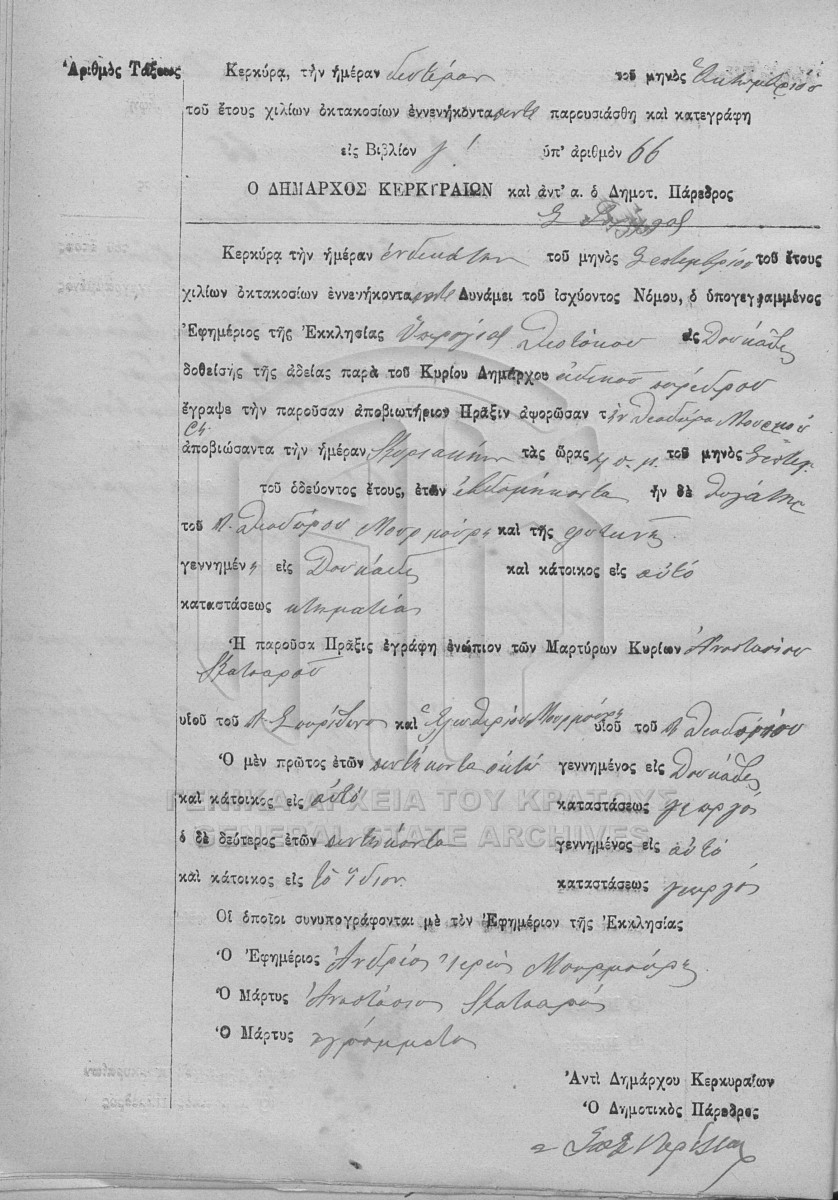 Ἀριθμὸς Τάξεως
Κερκύρα, τὴν ἡμέραν δευτέραν τοῦ μηνὸς Ὀκτωβρίου
τοῦ ἔτους χιλίων ὀκτακοσίων ἐννενήκοντα πέντε παρουσιάσθη καὶ κατεγράφη
εἰς Βιβλίον γ! ὑπ' ἀριθμὸν 66
Ο ΔΗΜΑΡΧΟΣ ΚΕΡΚΥΡΑΙΩΝ καὶ ἀντ' α. ὁ Δημοτ. Πάρεδρος
Κερκύρα τὴν ἡμέραν ἑνδεκάτην τοῦ μηνὸς Σεπτεμβρίου τοῦ ἔτους
χιλίων ὀκτακοσίων ἐννενήκοντα πέντε Δυνάμει τοῦ ἰσχύοντος Νόμου, ὁ ὑπογεγραμμένος
Ἐφημέριος τῆς Ἐκκλησίας Ὑπεραγίας Θεοτόκου εἰς Δουκάδες
δοθείσης τῆς ἀδείας παρὰ τοῦ Κυρίου Δημάρχου εἰδικοῦ παρέδρου
ἔγραψε τὴν παροῦσαν ἀποβιωτήριον Πρᾶξιν ἀφορῶσαν τὴν Θεοδώρα Μουρμού
ρη
ἀποβιώσαντα τὴν ἡμέραν Κυριακήν τὰς ὥρας π.μ. τοῦ μηνὸς Σεπτεμ.
τοῦ ὁδεύοντος ἔτους, ἐτῶν ἑβδομήκοντα ἦν δὲ θυγάτηρ
τοῦ π. Θεοδώρου Μουρμούρη καὶ τῆς φωτεινῆς
γεννημένη εἰς Δουκάδες καὶ κάτοικος εἰς αὐτό
καταστάσεως κτηματίας
Ἡ παροῦσα Πρᾶξις ἐγράφη ἐνώπιον τῶν Μαρτύρων Κυρίων Ἀναστασίου
Κατσαροῦ
υἱοῦ τοῦ π. Σπυρίδωνος καὶ Ἐλευθερίου Μουρμούρη υἱοῦ τοῦ π. Θεοδώρου
Ὁ μὲν πρῶτος ἐτῶν πεντήκοντα ὀκτώ γεννημένος εἰς Δουκάδες
καὶ κάτοικος εἰς αὐτό καταστάσεως γεωργός
ὁ δὲ δεύτερος ἐτῶν πεντήκοντα γεννημένος εἰς αὐτό
καὶ κάτοικος εἰς τὸ ἴδιον καταστάσεως γεωργός
Οἱ ὁποῖοι συνυπογράφονται μὲ τὸν Ἐφημέριον τῆς Ἐκκλησίας
Ὁ Ἐφημέριος Ἀνδρέας Ἱερεὺς Μουρμούρης
Ὁ Μάρτυς Ἀναστάσιος Κατσαρός
Ὁ Μάρτυς ἀγράμματος
Ἀντὶ Δημάρχου Κερκυραίων
Ὁ Δημοτικὸς Πάρεδρος
ΓΕΝΙΚΑ ΑΡΧΕΙΑ ΤΟΥ ΚΡΑΤΟΥΣ
GENERAL STATE ARCHIVES